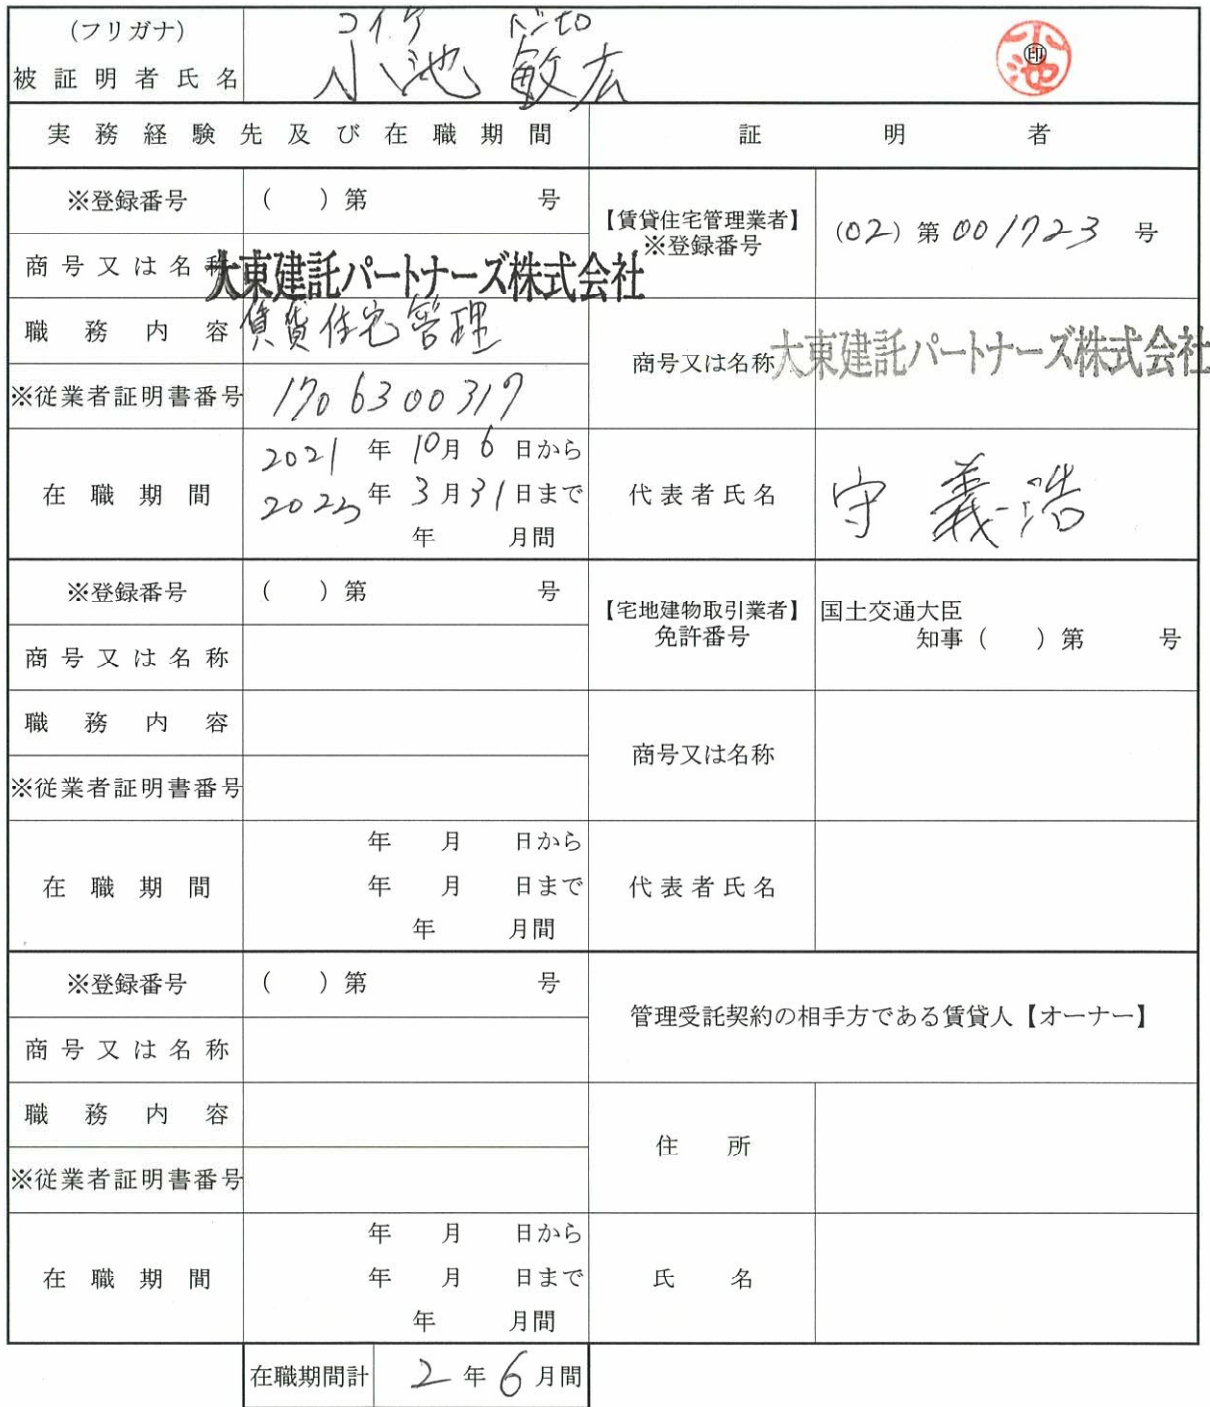 (フリガナ) コイケ トシヒロ
被証明者氏名 小池 敏広 小池 ㊞
実務経験先及び在職期間 証明者
※登録番号 ( ) 第 号
商号又は名称 大東建託パートナーズ株式会社
職務内容 賃貸住宅管理
※従業者証明書番号 1706300317
在職期間 2021 年 10 月 6 日から
2023 年 3 月 31 日まで
年 月間
【賃貸住宅管理業者】
※登録番号 (02) 第 001723 号
商号又は名称 大東建託パートナーズ株式会社
代表者氏名 守 義浩
※登録番号 ( ) 第 号
商号又は名称
職務内容
※従業者証明書番号
在職期間 年 月 日から
年 月 日まで
年 月間
【宅地建物取引業者】 国土交通大臣
免許番号 知事 ( ) 第 号
商号又は名称
代表者氏名
※登録番号 ( ) 第 号
商号又は名称
職務内容
※従業者証明書番号
在職期間 年 月 日から
年 月 日まで
年 月間
管理受託契約の相手方である賃貸人【オーナー】
住所
氏名
在職期間計 2 年 6 月間